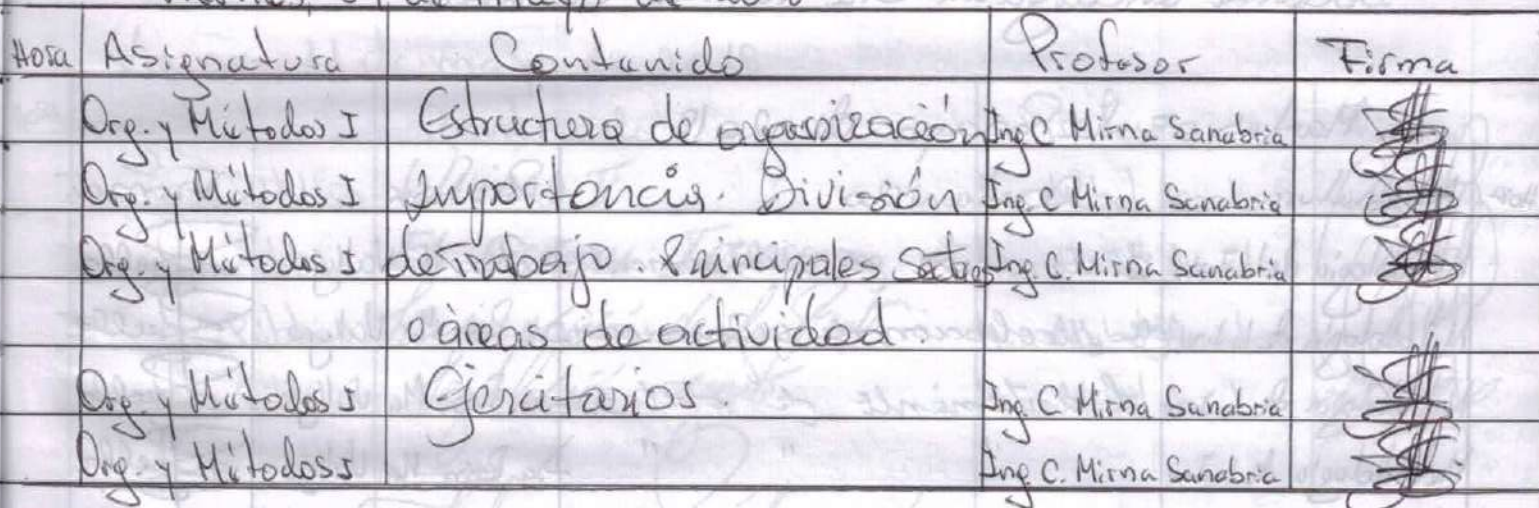 Hora Asignatura Contenido Profesor Firma
Org. y Métodos I Estructura de organización Ing. C. Mirna Sanabria
Org. y Métodos I Importancia. División Ing. C. Mirna Sanabria
Org. y Métodos I de Trabajo. Principales Ing. C. Mirna Sanabria
o áreas de actividad
Org. y Métodos I Ejercitarios. Ing. C. Mirna Sanabria
Org. y Métodos I Ing. C. Mirna Sanabria